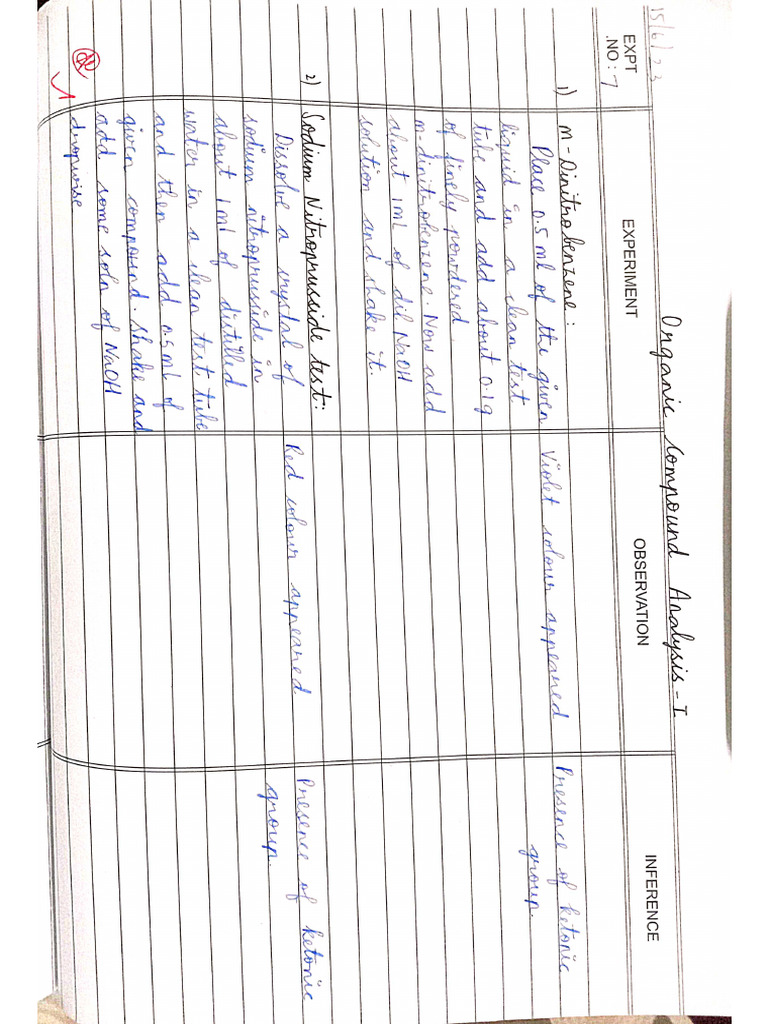 15/6/23
Organic Compound Analysis - I
EXPT
.NO: 7
EXPERIMENT
OBSERVATION
INFERENCE
1) m-Dinitrobenzene:
Place 0.5 ml of the given
liquid in a clean test
tube and add about 0.1g
of finely powdered
m-dinitrobenzene. Now add
about 1mL of dil NaOH
solution and shake it.
Violet colour appeared
Presence of ketonic
group.
2) Sodium Nitroprusside test:
Dissolve a crystal of
sodium nitroprusside in
about 1ml of distilled
water in a clean test tube
and then add 0.5ml of
given compound. shake and
add some soln of NaOH
dropwise
Red colour appeared
Presence of ketonic
group.